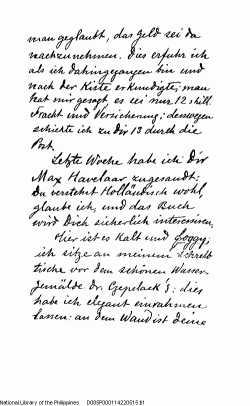 man geglaubt, das Geld sei da
nachzunehmen. Dies erfuhr ich
als ich dahingegangen bin und
nach der Kiste erkundigte; man
hat mir gesagt, es sei nur 12 shill.
Fracht und Versicherung; deswegen
schickte ich zu Dir 13 durch die
Post.
Letzte Woche habe ich Dir
Max Havelaar zugesandt:
Du verstehst Holländisch wohl,
glaube ich, und das Buch
wird Dich sicherlich interessiren.
Hier ist es kalt und foggy;
ich sitze an meinem Schreib
tische vor dem schönen Wasser-
gemälde Dr. Czepelack's: dies
habe ich elegant einrahmen
lassen: an dem Wand ist deine
National Library of the Philippines D00SP00011422051511